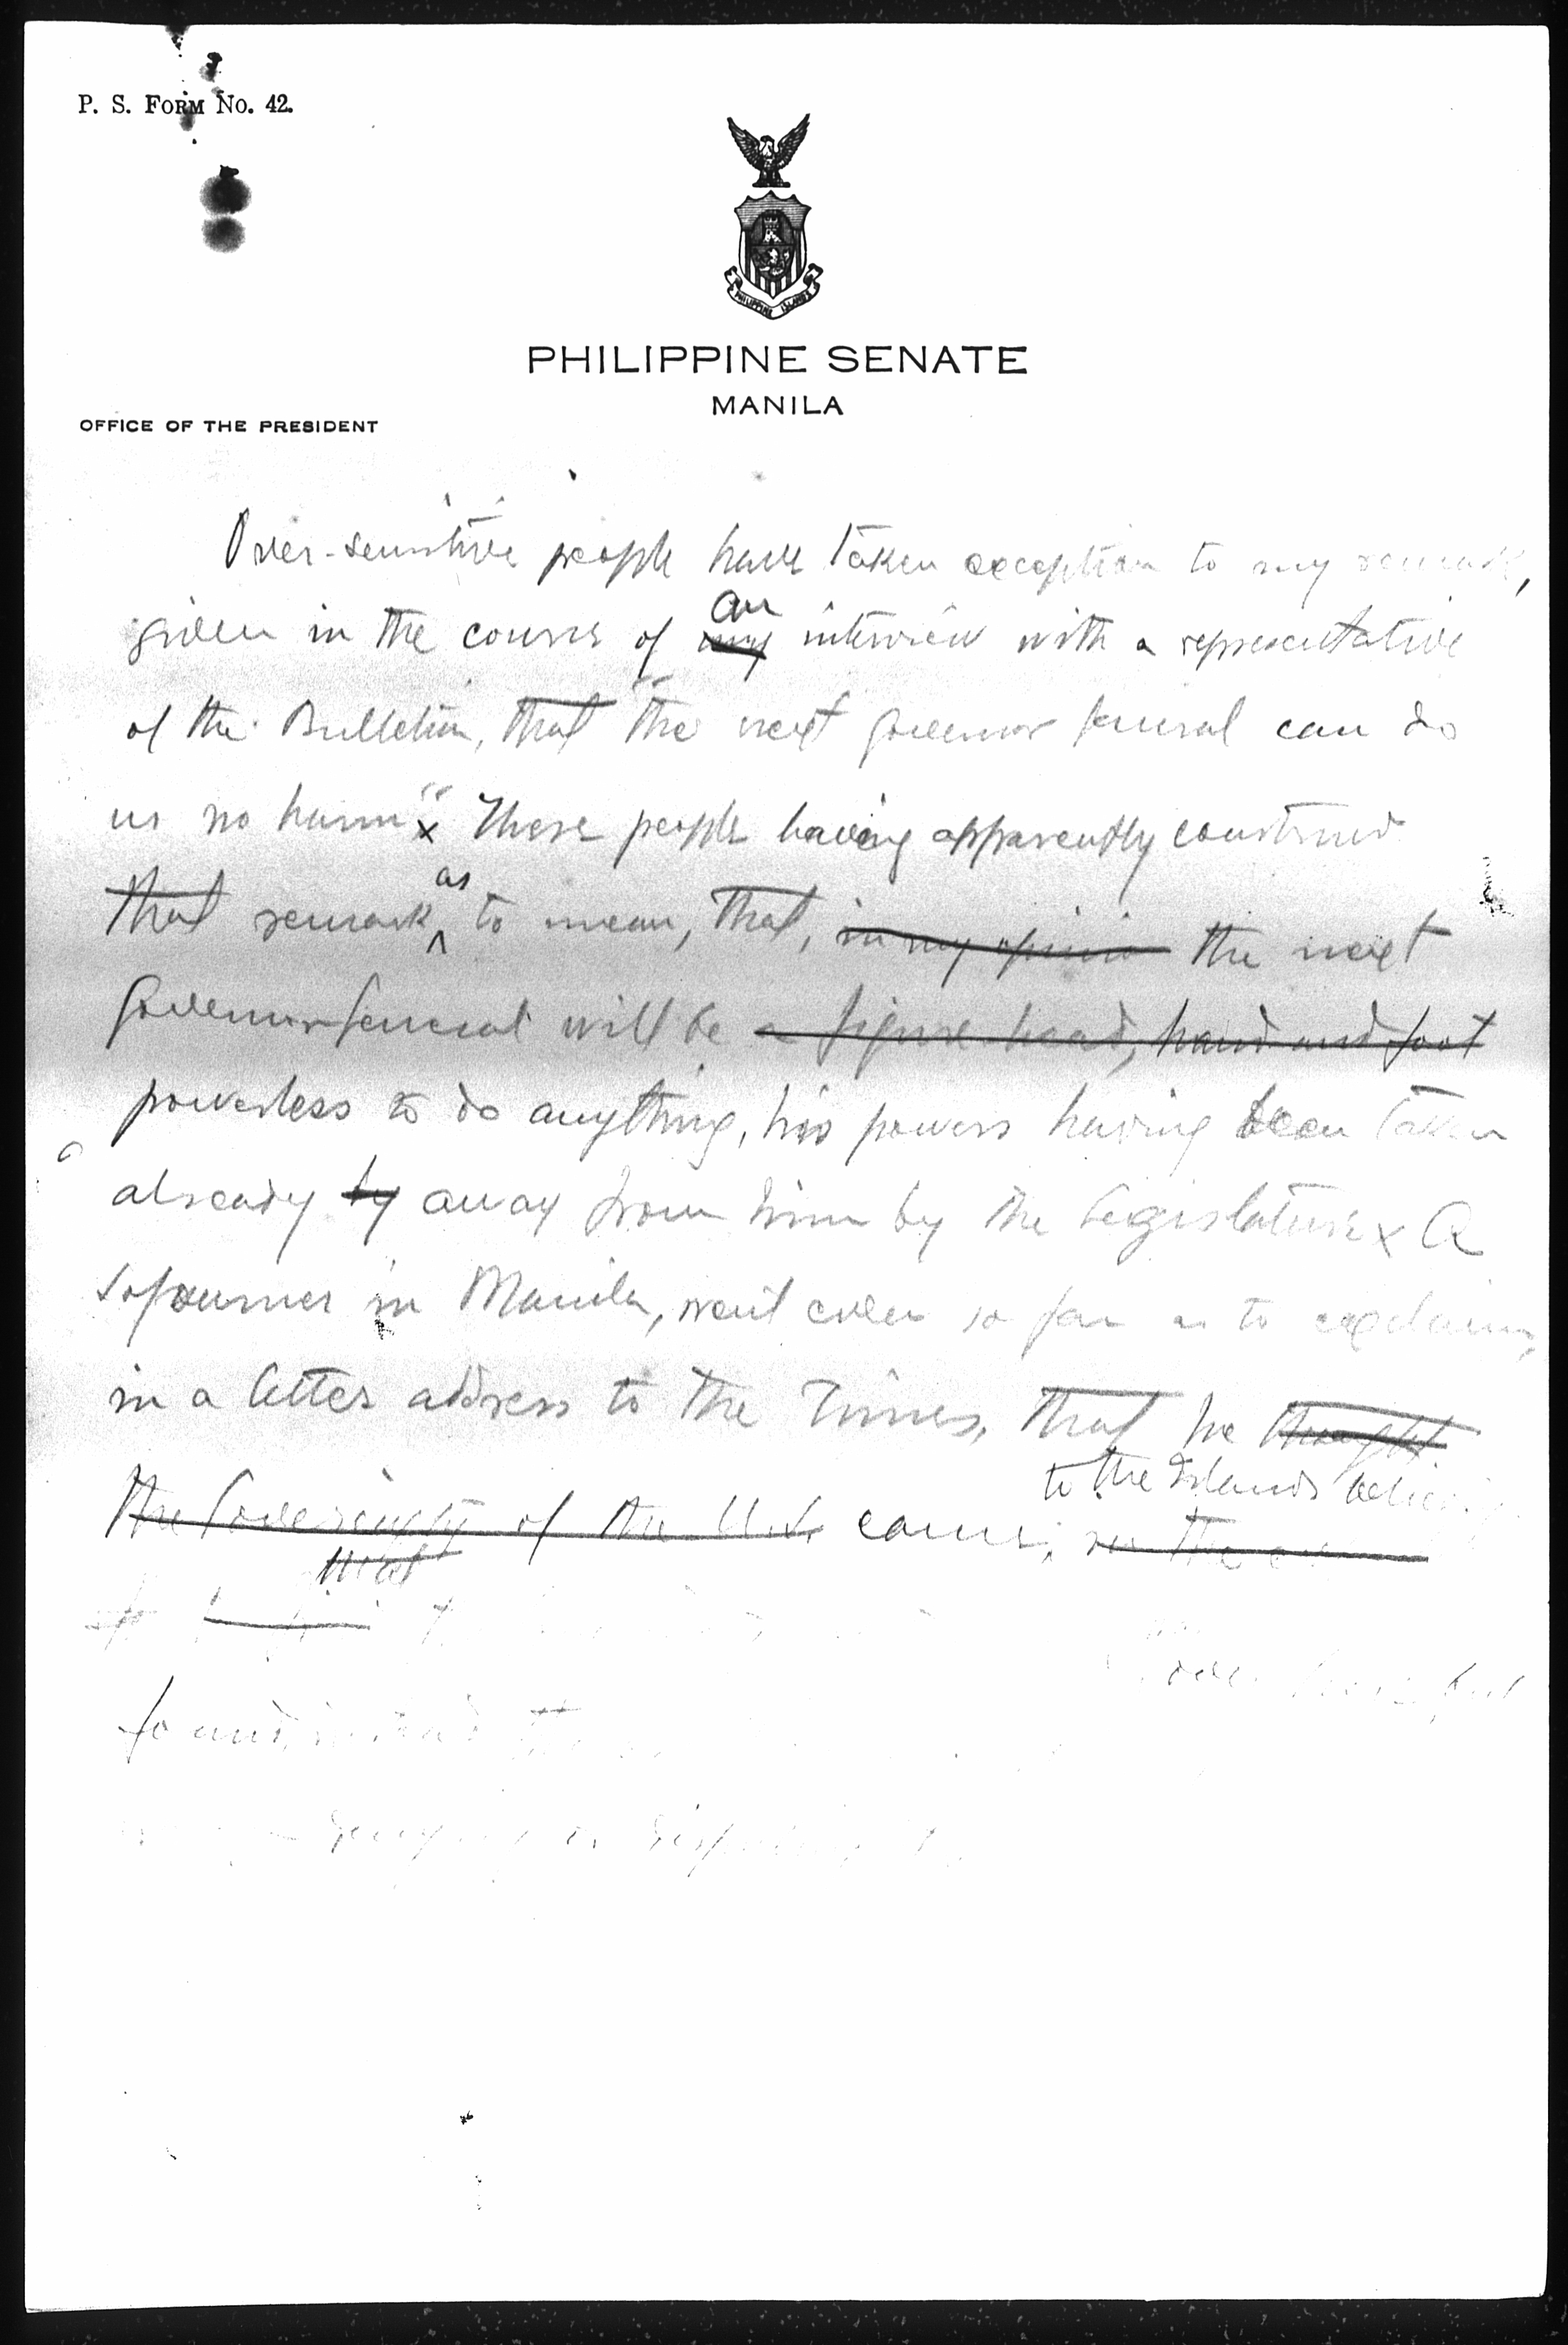 P. S. FORM NO. 42.
PHILIPPINE ISLANDS
PHILIPPINE SENATE
MANILA
OFFICE OF THE PRESIDENT
Over-sensitive people have taken exception to my remark,
an
given in the course of my interview with a representative
of the Bulletin, that "the next governor general can do
us no harm" x These people having apparently construed
as
that remark ^ to mean, that, in my opinion the next
Governor-General will be a figure head, hand and foot
powerless to do anything, his powers having been taken
already by away from him by the Legislature x A
sojourner in Manila, went even so far as to exclaim,
in a letter address to the Times, that he thought
to the Islands believing
the Sovereignty of the U.S. came, in the
that
over here, but
found, instead